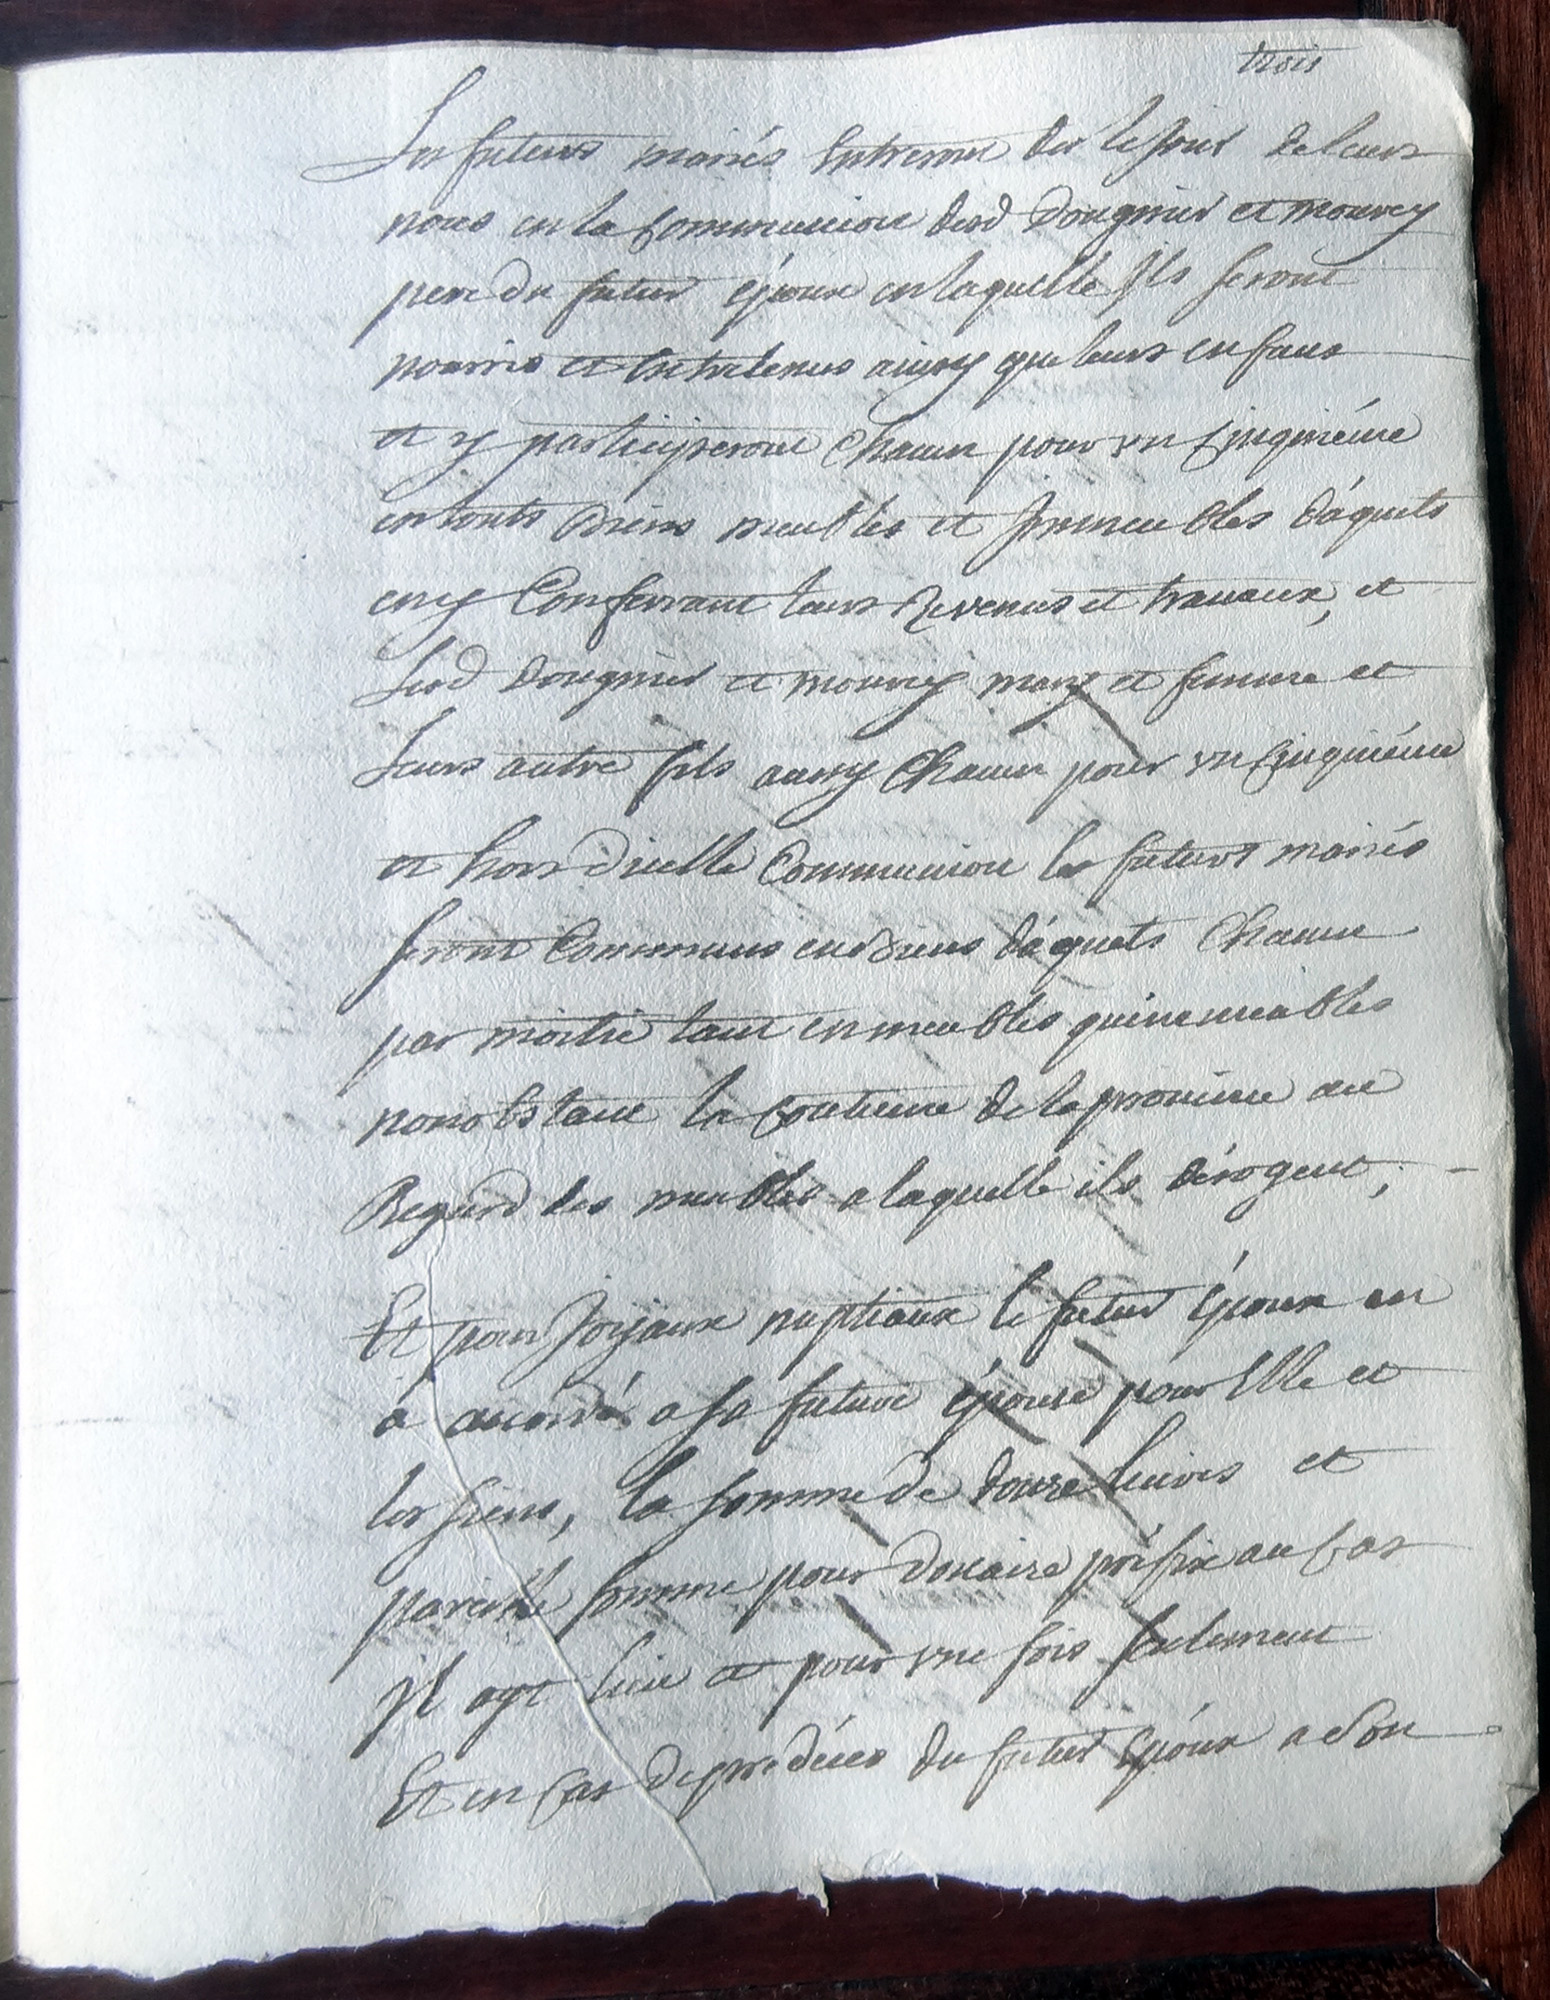 trois
Les futurs mariés Entreront des le jour de leurs
noces en la Communion desd Dougnier et mourey
pere du futur époux en laquelle Ils seront
nourris et Entretenus ainsy que leurs enfans
et y participeront Chacun pour vn Cinqiéme
en touts Biens meubles et Immeubles d'áquets
en y Conferrant leurs Revenus et travaux, et
Lesd Dougnier et mourey mary et femme et
Leurs autre fils aussy Chacun pour vn Cinqiéme
et hors d'icelle Communion les futurs mariés
seront Communs en Biens d'áquets Chacun
par moitié tant en meubles qu'inmeubles
nonobstant la Coutume de la province au
Regard des meubles a laquelle ils dérogent;
Et pour Joyaux nuptiaux le futur époux en
a accordé a sa future épouse pour Elle et
les siens, la somme de douze Livres et
pareille somme pour douaire préfix au Cas
jl ayt lieu et pour vne fois seulement
Et en Cas de prédécés du futur époux a Son